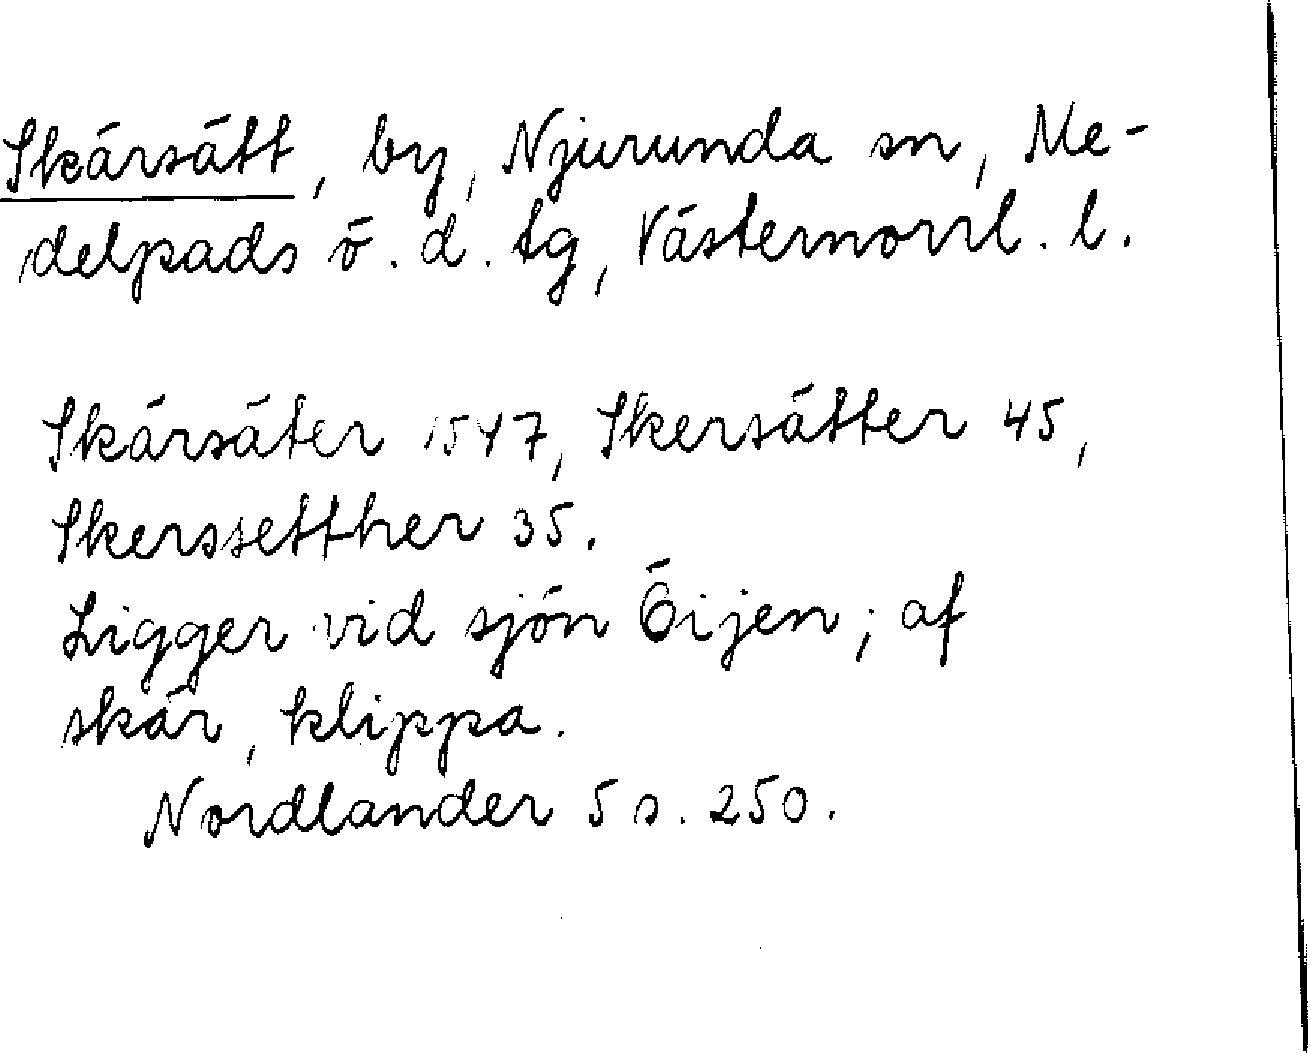 Skärsätt, by, Njurunda sn, Me-
delpads ö. d. tg, Västernorrl. l.
Skärsäter 1547, Skersätter 45,
Skerssetther 35.
Ligger vid sjön Öijen; af
skär, klippa.
Nordlander 5 s. 250.